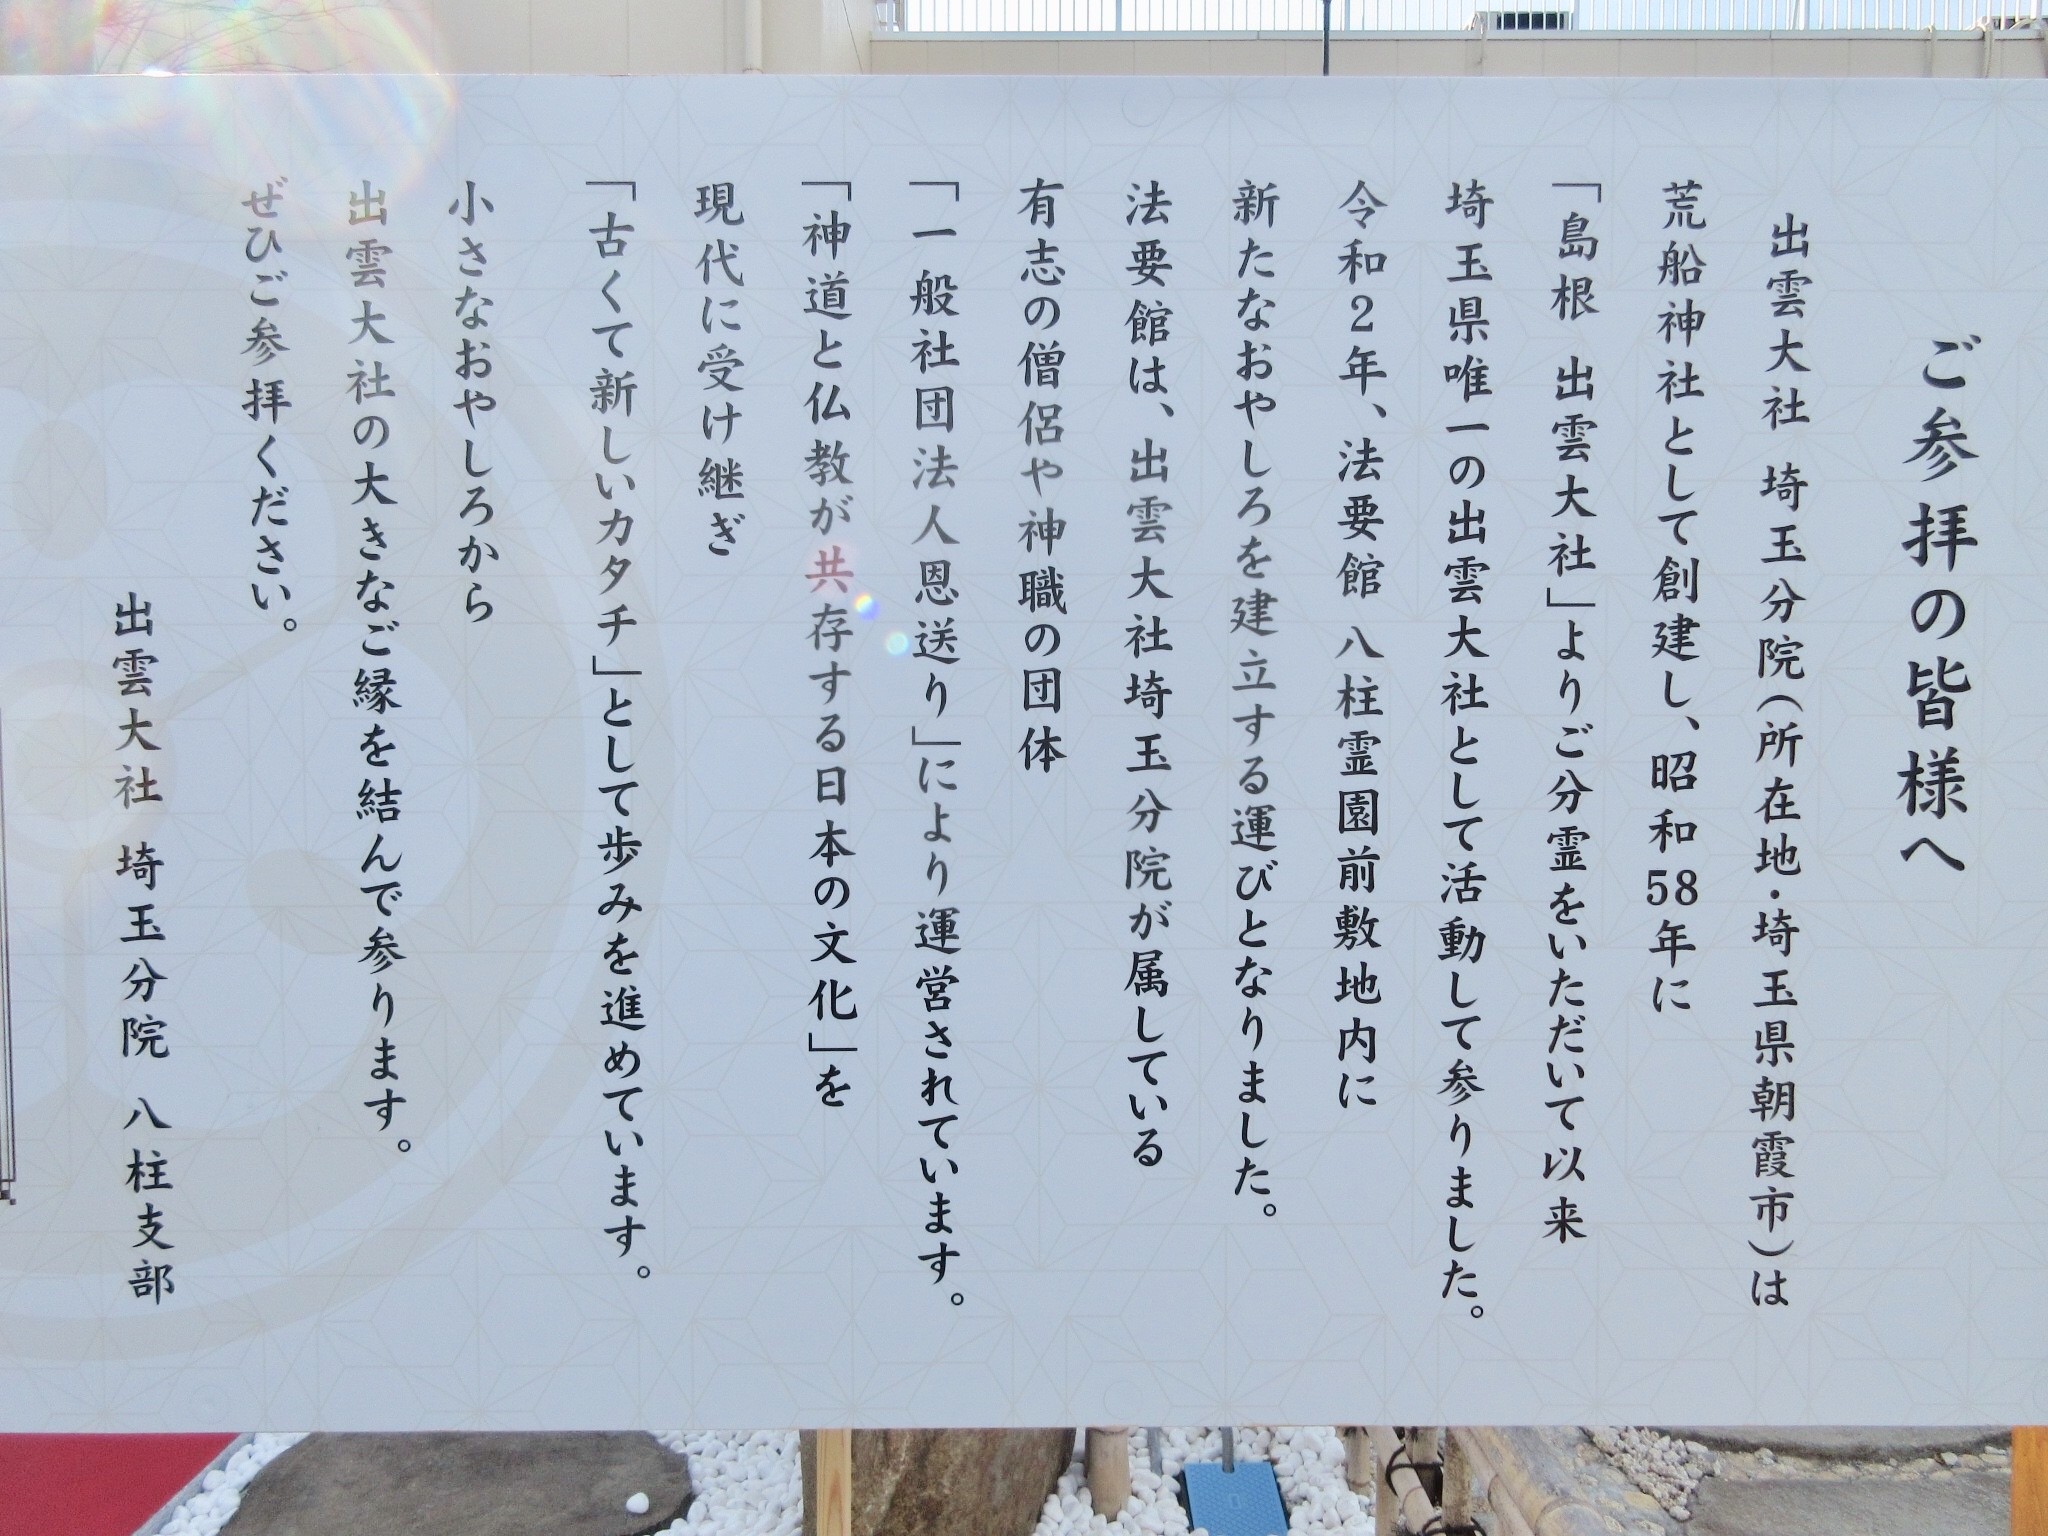 ご参拝の皆様へ
出雲大社 埼玉分院(所在地・埼玉県朝霞市)は
荒船神社として創建し、昭和58年に
「島根 出雲大社」よりご分霊をいただいて以来
埼玉県唯一の出雲大社として活動して参りました。
令和2年、法要館 八柱霊園前敷地内に
新たなおやしろを建立する運びとなりました。
法要館は、出雲大社埼玉分院が属している
有志の僧侶や神職の団体
「一般社団法人恩送り」により運営されています。
「神道と仏教が共存する日本の文化」を
現代に受け継ぎ
「古くて新しいカタチ」として歩みを進めています。
小さなおやしろから
出雲大社の大きなご縁を結んで参ります。
ぜひご参拝ください。
出雲大社 埼玉分院 八柱支部